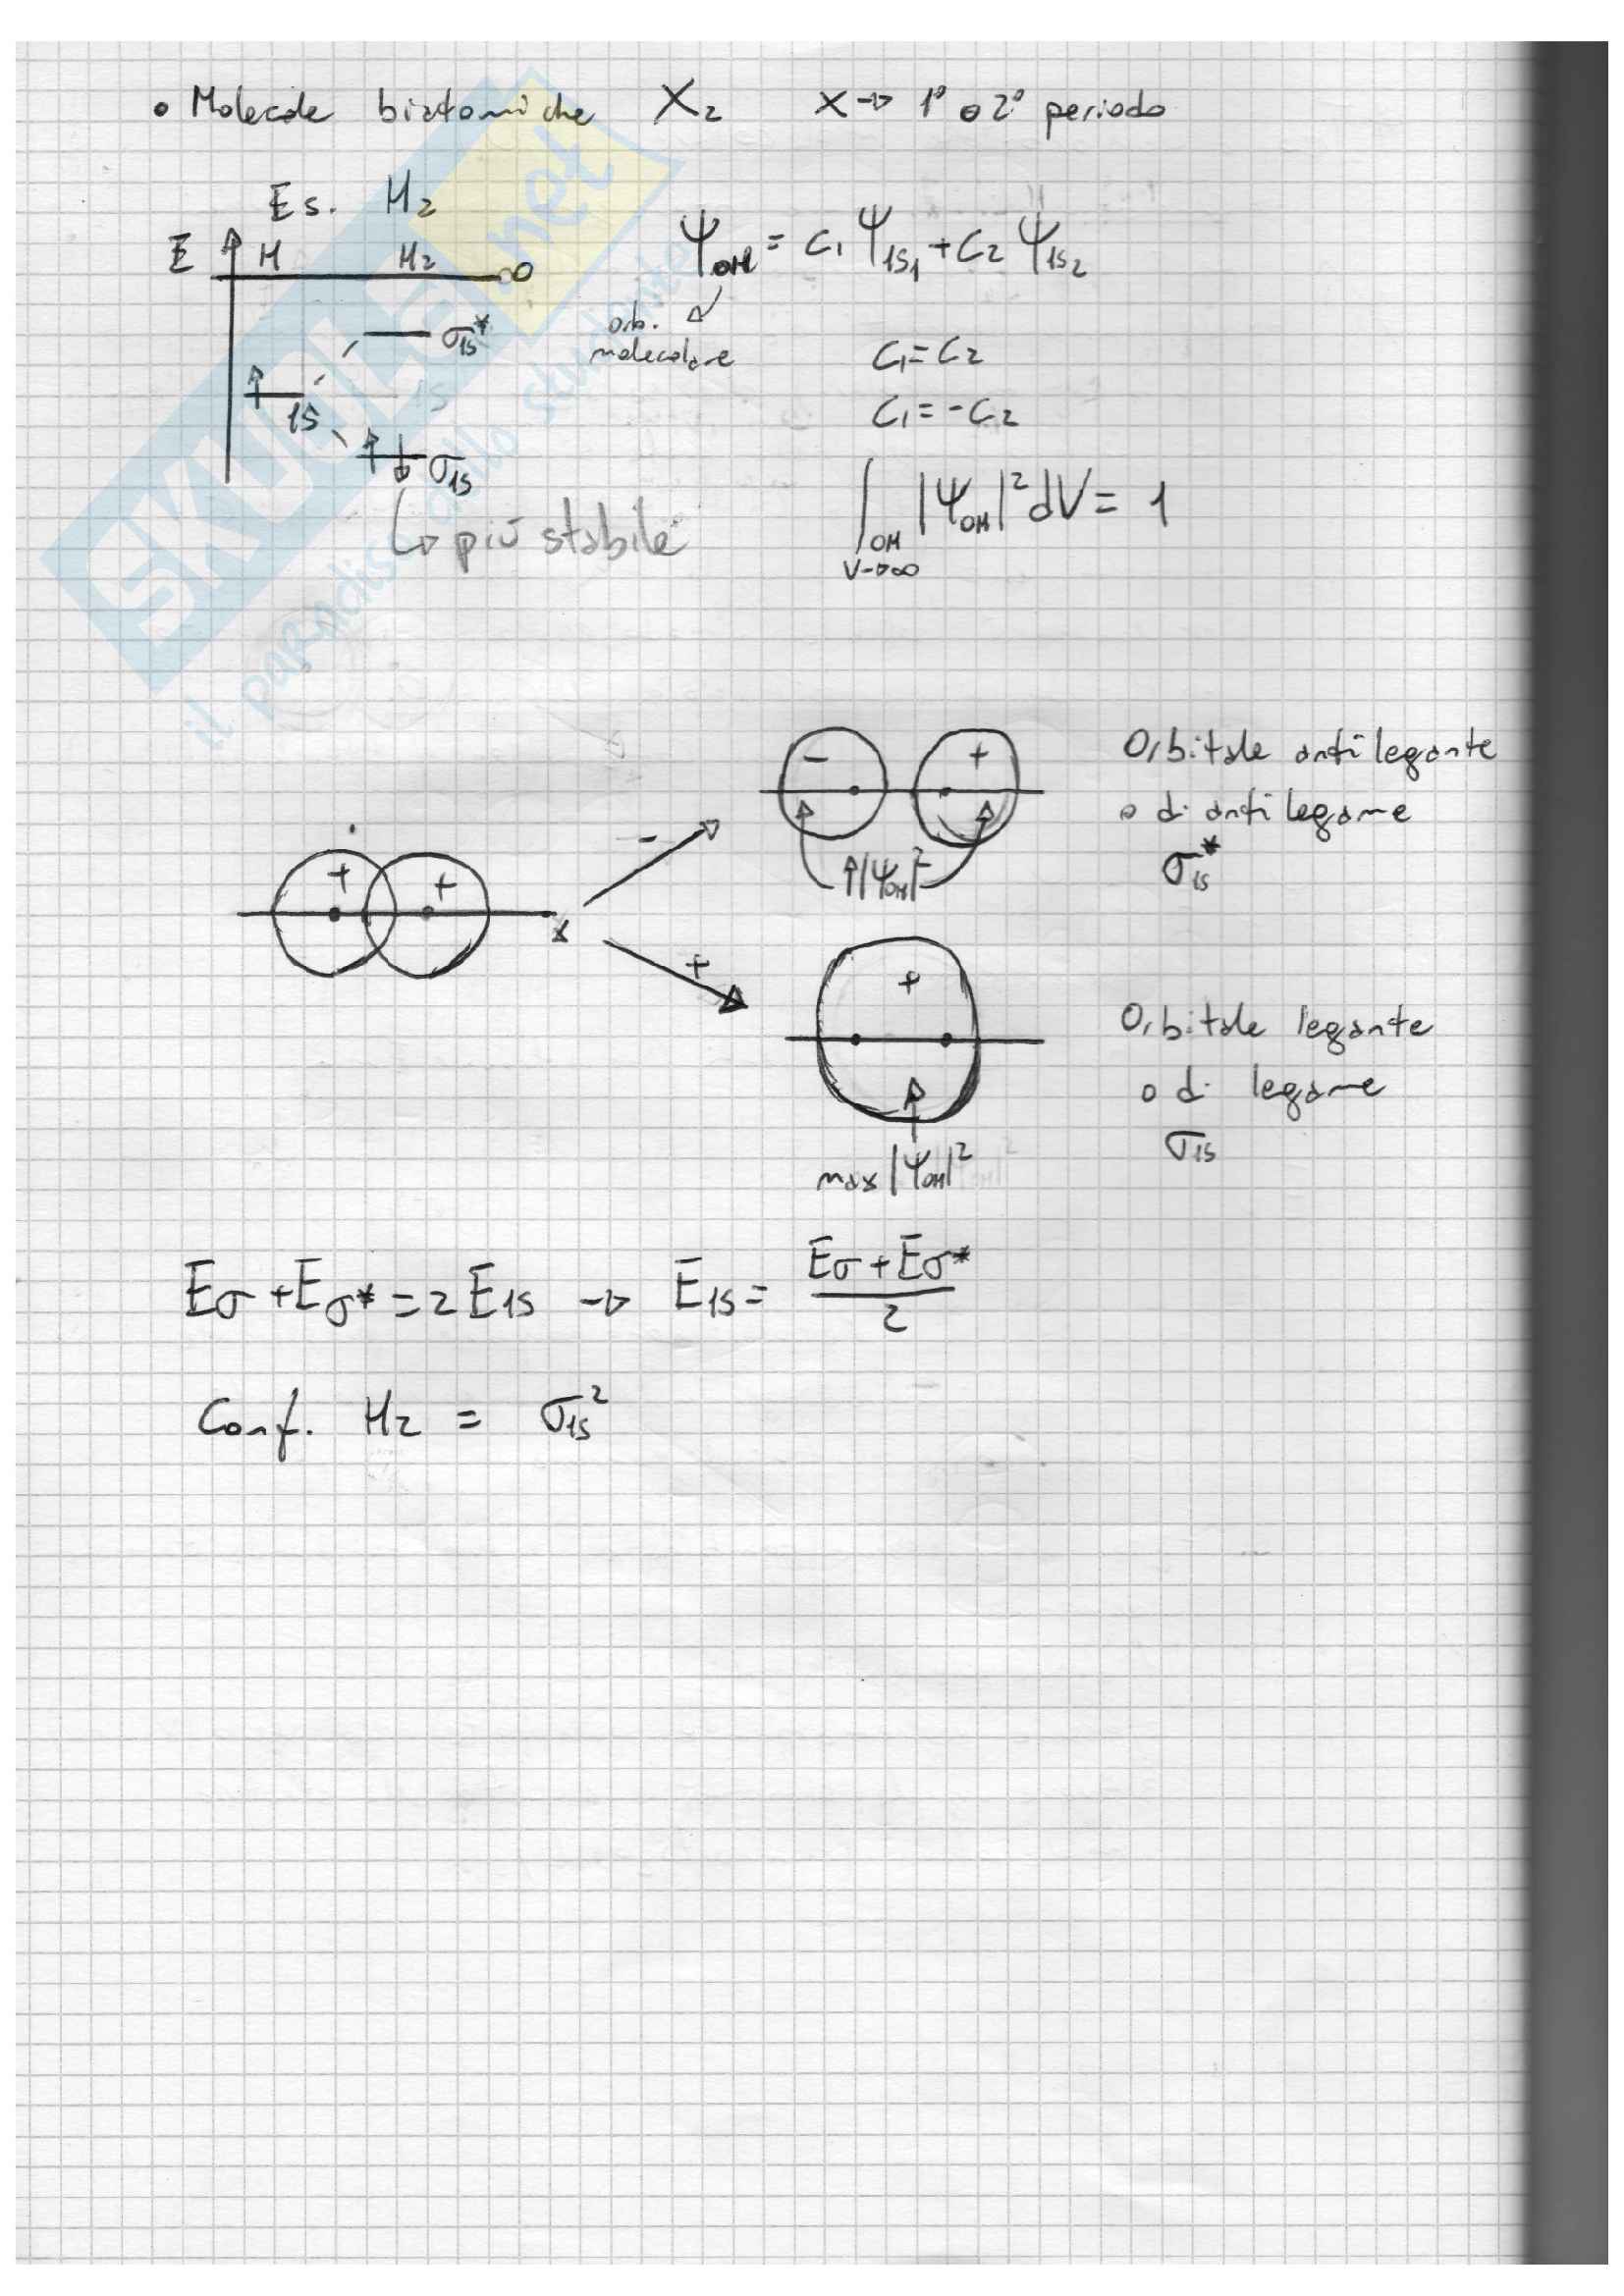 • Molecole biatomiche X₂ X → 1° o 2° periodo
Es. H₂
E H H₂ 0
σ₁ₛ*
1S
σ₁ₛ
↳ più stabile
Ψ_OM = C₁ Ψ_1S₁ + C₂ Ψ_1S₂
orb.
molecolare
C₁ = C₂
C₁ = -C₂
∫_OM |Ψ_OM|² dV = 1
V→∞
SKUOLA.net
il paradiso dello studente
- +
↑|Ψ_OM|²
Orbitale antilegante
o di antilegame
σ₁ₛ*
+ +
x
-
+
+
max |Ψ_OM|²
Orbitale legante
o di legame
σ₁ₛ
Eσ + Eσ* = 2 E1S → E1S = (Eσ + Eσ*)/2
Conf. H₂ = σ₁ₛ²